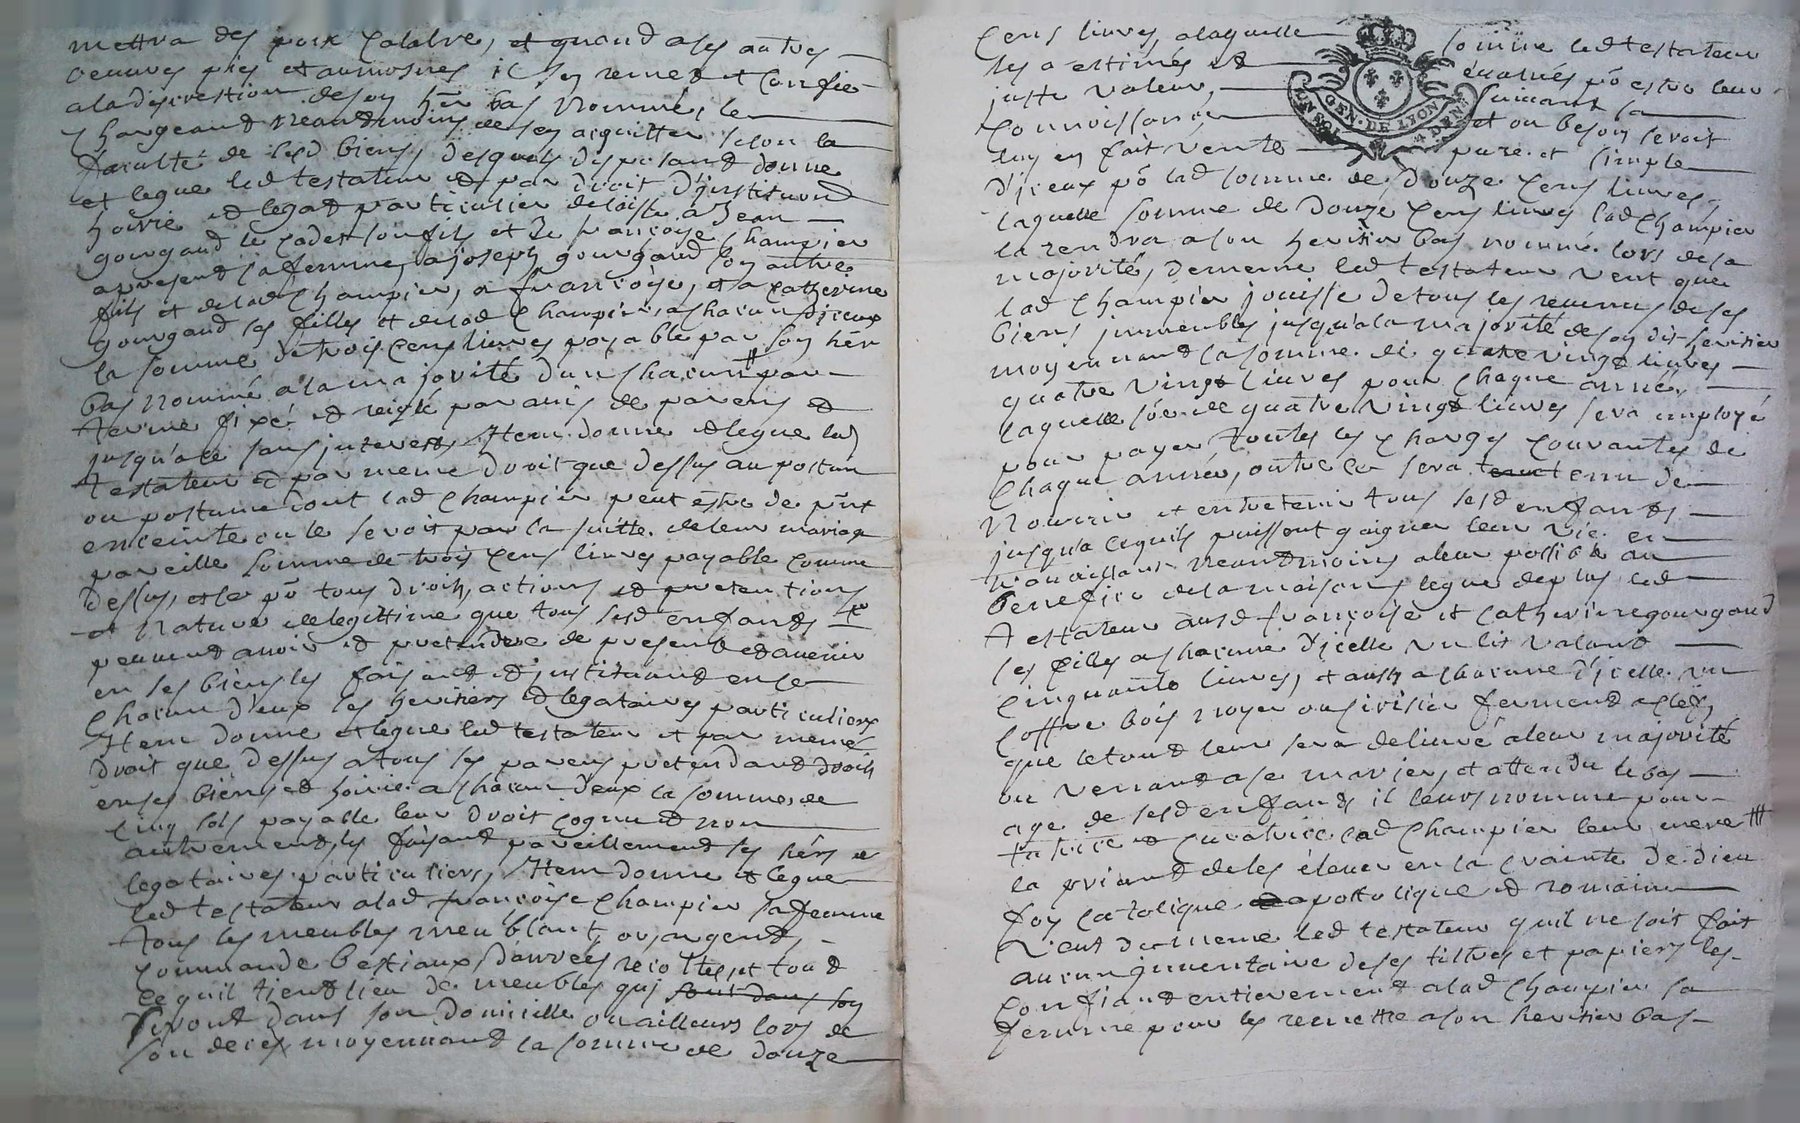 mettra des poix calabre, et quand a ses autres
oeuvres pies et aumosnes il sen remet et confie
a la discrestion de son hēr bas nommé, le
chargeand neandmoins de sen acquitter selon la
faculté de sesd biens, desquels disposand donne
et legue led testateur et par droit d'institu͠on
hoirie et legat particulier delaisse a Jean
gourgaud le cadet son fils et de françoise Champier
apresent sa femme, a joseph gourgaud son autre
fils et de lad Champier, a françoise, et a Catherine
gourgaud ses filles et de lad Champier, a chacun d'iceux
la somme de trois cens livres payable par son hēr
bas nommé a la majorité d'un chacun # par
terme fixé et reiglé par avis de parens et
jusqu'a ce sans interests, Item donne et legue led
testateur et par meme droit que dessus au postum
ou postume dont lad Champier peut estre de pn̄t
enceinte ou le seroit par la suitte de leur mariage
pareille somme de trois cens livres payable comme
dessus, et ce pō tous droits, actions et pretentions
et nature de legitime que tous sesd enfants
peuvend avoir et pretendre de present et avenir
en ses biens les faisand et instituand en ce
chacun d'eux ses heritiers et legataires particuliers
Item donne et legue led testateur et par meme
droit que dessus a tous ses parens pretendand droits
en ses biens et hoirie a chacun d'eux la somme de
cinq sols payable leur droit cognu et non
autrement, les faisand pareillement ses hērs et
legataires particuliers, Item donne et legue
led testateur a lad françoise Champier sa femme
tous les meubles meublant, or, argent,
commande bestiaux, danrées, recoltes, et tout
ce quil tiend lieu de meubles qui sont dans son
seront dans son domicille ou ailleurs lors de
son deces moyennand la somme de douze
cens livres a laquelle somme led testateur
les a estimés et évalués pō estre leur
juste valeur, suivant sa
connoissance et ou besoin seroit
luy en fait vente pure et simple
d'iceux pō lad somme de douze cens livres,
laquelle somme de douze cens livres lad Champier
la rendra a son heritier bas nommé lors de sa
majorité, de meme led testateur veut que
lad Champier jouisse de tous les revenus de ses
biens immeubles jusqu'a la majorité de son dit heritier
moyennand la somme de quatre vingt livres
quatre vingt livres pour chaque année,
laquelle sōe de quatre vingt livres sera employé
pour payer toutes les charges courantes de
chaque année, outre ce sera tenue tenu de
nourrir et entretenir tous sesd enfants
jusqu'a ce quils puissent gaigner leur vie en
travaillant neandmoins a leur possible au
benefice de la maison, legue de plus led
testateur ausd françoise et catherine gourgaud
ses filles a chacune d'icelle un lit valand
cinquante livres, et aussy a chacune d'icelle un
coffre bois noyer ou cirisier fermend a clefs
que le tout leur sera delivré a leur majorité
ou venand a se marier, et attendu le bas
age de sesd enfants il leurs nomme pour
tutrice et curatrice lad Champier leur mere #
la priand de les élever en la crainte de dieu
foy catolique apostolique et romaine
Veut de meme led testateur quil ne soit fait
aucun inventaire de ses tiltres et papiers les
confiand entierement a lad Champier sa
femme pour les remettre a son heritier bas
GEN. DE LYON